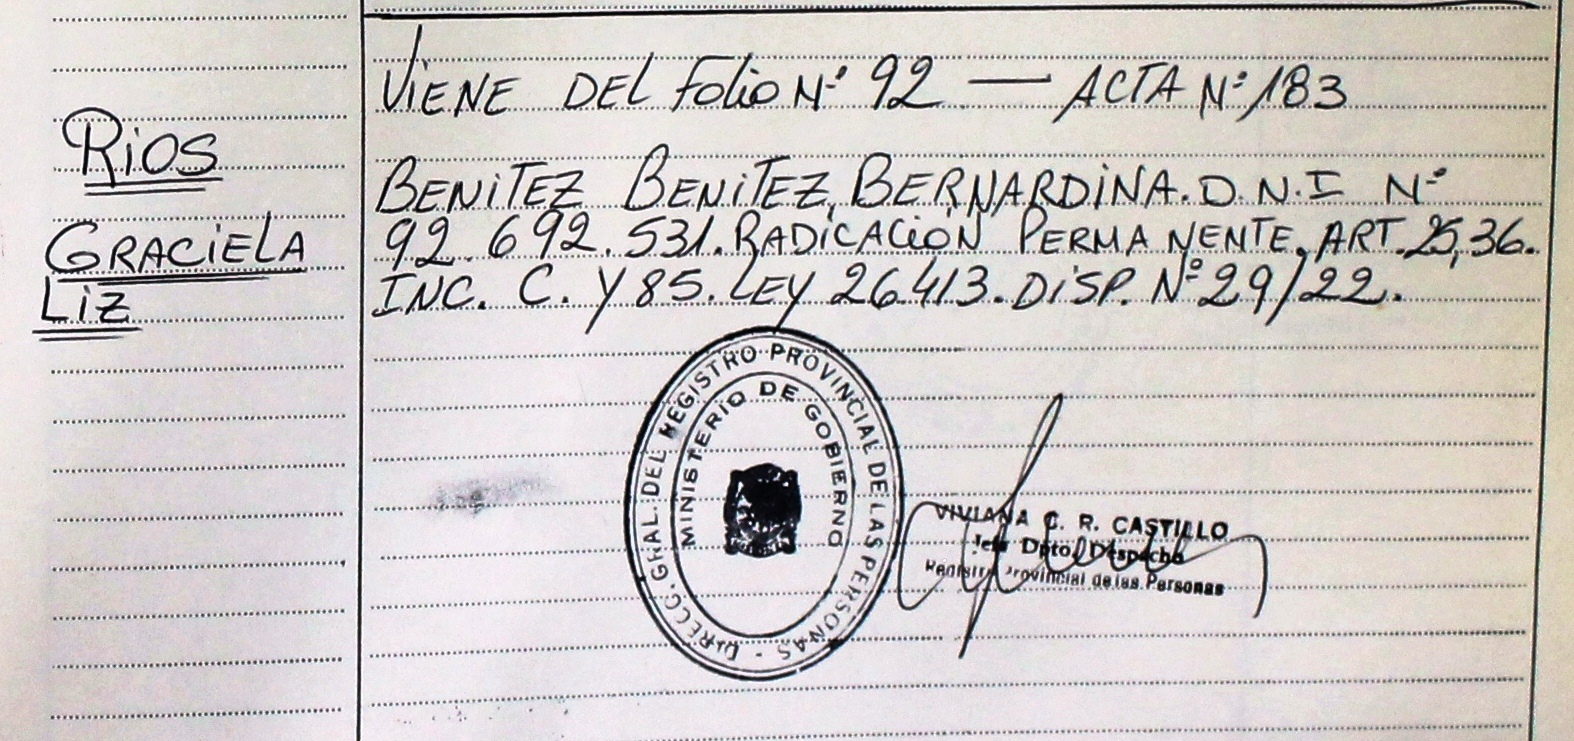 Rios
GRACIELA
Liz
ViENE DEL Folio Nº 92 — ACTA Nº 183
BENiTEZ BENiTEZ, BERNARDiNA. D.N.I Nº
92.692.531. RADICACiÓN PERMANENTE. ART. 25, 36.
INC. C. Y 85. LEY 26413. DiSP. Nº 29/22.
DIRECC. GRAL. DEL REGISTRO PROVINCIAL DE LAS PERSONAS -
MINISTERIO DE GOBIERNO
VIVIANA C. R. CASTILLO
Jefa Dpto. Despacho
Registro Provincial de las Personas